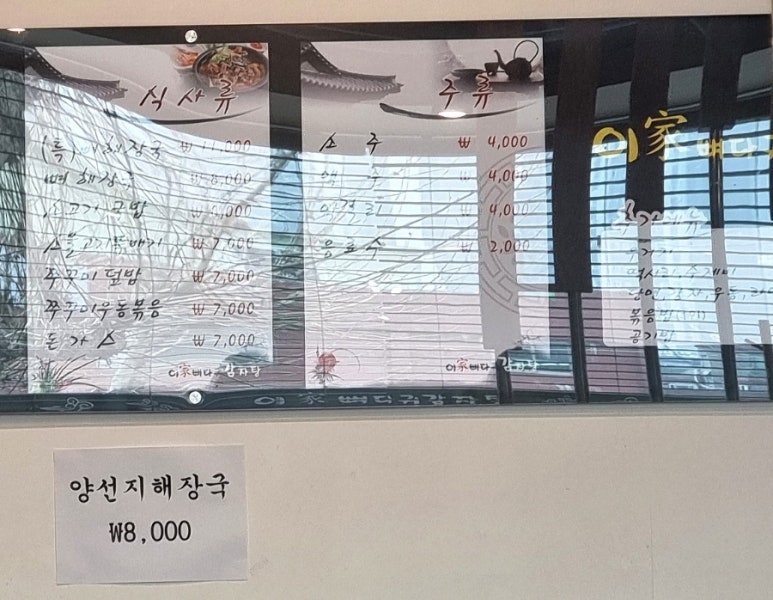 식사류
(특)뼈해장국 ₩ 11,000
뼈해장국 ₩ 8,000
소고기국밥
소불고기뚝배기 ₩ 7,000
쭈꾸미덮밥 ₩ 7,000
쭈꾸미우동볶음 ₩ 7,000
돈가스 ₩ 7,000
이家뼈다귀감자탕
주류
소주 ₩ 4,000
맥주 ₩ 4,000
막걸리 ₩ 4,000
음료수 ₩ 2,000
이家뼈다귀감자탕
이家뼈다
추가메뉴
볶음밥(1인)
공기밥
이家 뼈다귀감자탕
양선지해장국
₩8,000